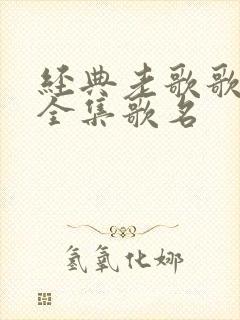 經典老歌歌
全集歌名
氢氧化娜